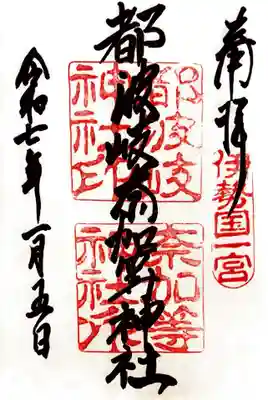 奉拝
伊勢国一宮
都波岐奈加等神社
都波岐
神社印
奈加等
神社印
令和七年一月五日